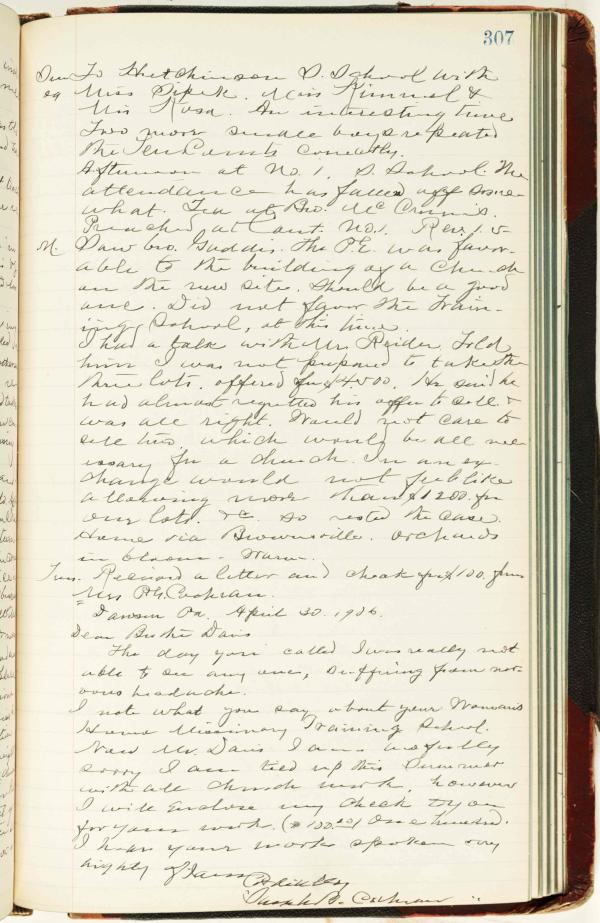 307
Sun To Hutchinson S. School with
29 Miss Sipek. Miss Kimmel &
Mis Rosa. An interesting time
Two more small boys repeated
the Ten Comts correctly.
Afternoon at No. 1. S. School. The
attendance has fallen off some-
what. Tea at Bro. McCrorris.
Preached at Cont. No. 1. Rev. 1.5
M. Saw bro. Gaddis. The P.E. was favor-
able to the building of a Church
on the new site. Should be a good
one. Did not favor the Train-
ing School, at this time.
I had a talk with Mr. Reider. Told
him I was not prepared to take the
three lots, offered for $4500. He said he
had almost regretted his offer to sell &
was all right. Would not care to
sell two, which would be all nec
essary for a church. In an ex-
change would not feel like
allowing more than $1200. for
our lots. &c. So rested the case.
Home via Brownsville. Orchards
in bloom. Warm.
Tues. Received a letter and check for $100. from
Mrs P.G. Cochran.
" Dawson Pa. April 30. 1906.
Dear Brother Davis
The day you called I was really not
able to see any one, suffering from ner-
vous headache.
I note what you say about your Womans
Home Missionary Training School.
Now Mr. Davis I am awfully
sorry I am tied up this Summer
with all church work, however
I will enclose my check to you
for your work. ($100.00) One Hundred.
I hear your work spoken very
highly of
Sarah B. Cochran